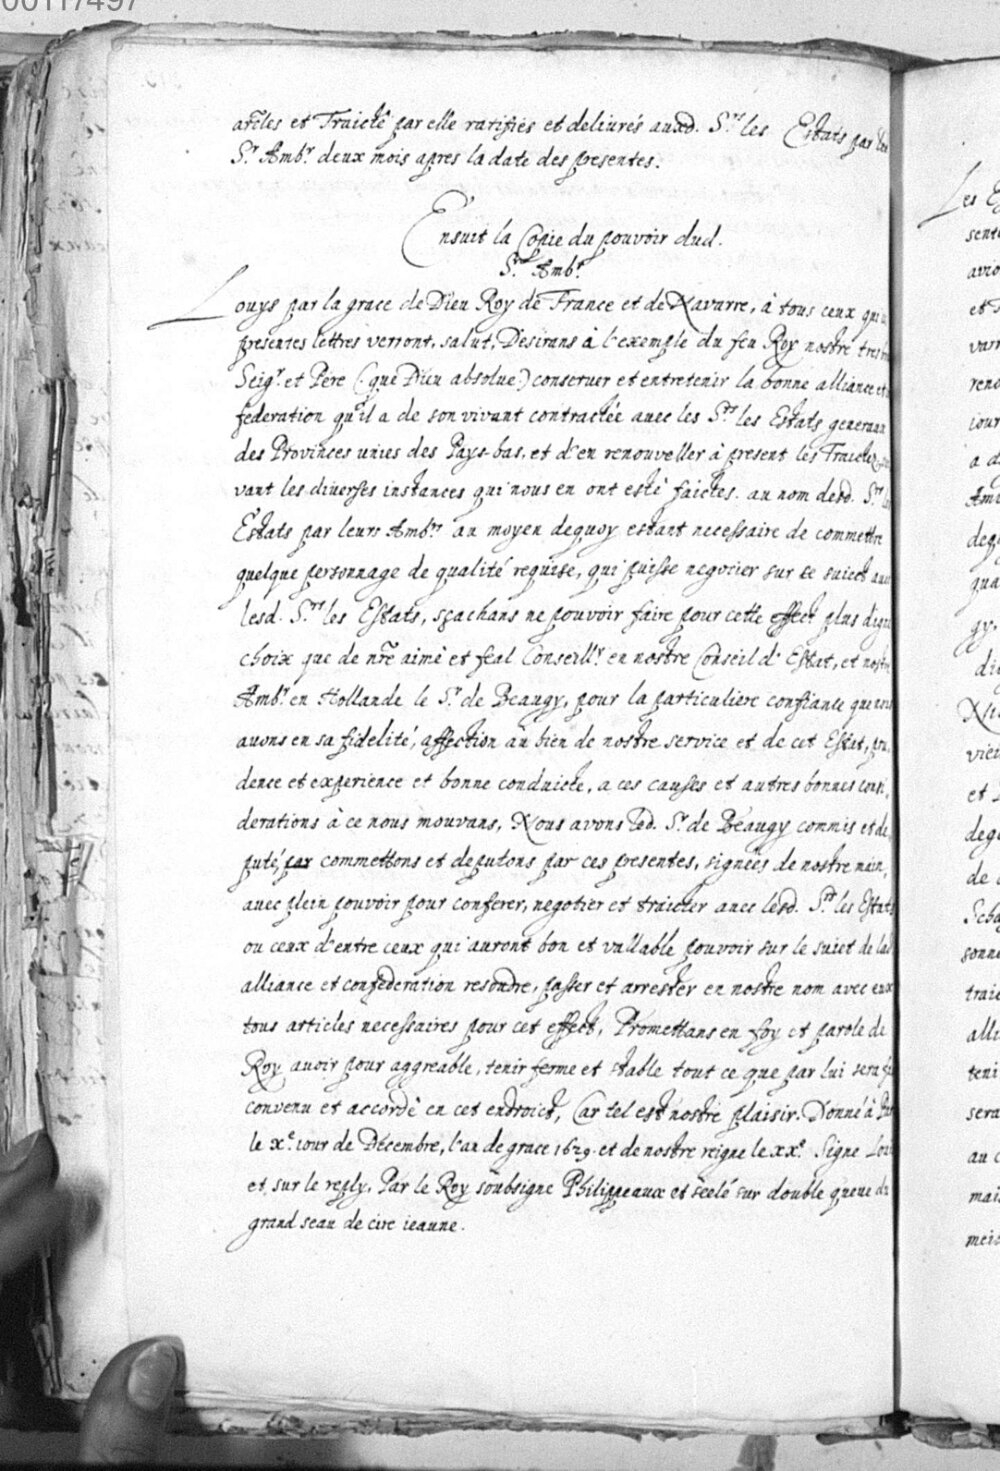 00117497
arẽles et Traictê par elle ratifiés et deliurés auxd. S.rs les Estats par led.
S.r Amb.r deux mois apres la date des presentes.
Ensuit la Copie du pouvoir dud.
S.r Amb.r
Louys par la grace de Dieu Roy de France et de Navarre, à tous ceux qui
presentes lettres verront, salut, Desirans à l'exemple du feu Roy nostre tres
Seig.r et Pere (que Dieu absolue) conseruer et entretenir la bonne alliance et
federation qu'il a de son vivant contractée auec les S.rs les Estats generaux
des Provinces unies des Pays-bas, et d'en renouveller à present les Traictez
vant les diuerses instances qui nous en ont esté faictes. au nom desd. S.rs les
Estats par leurs Amb.rs au moyen dequoy estant necessaire de commettre
quelque personnage de qualité requise, qui puisse negocier sur ce suiect auec
lesd. S.rs les Estats, sçachans ne pouvoir faire pour cette effect plus digne
choix que de nr̃e aimé et feal Conseill.r en nostre Conseil d'Estat, et nostre
Amb.r en Hollande le S.r de Beaugy, pour la particuliere confiance que nous
auons en sa fidelité, affection au bien de nostre service et de cet Estat, pru
dence et experience et bonne conduicte, a ces causes et autres bonnes consi,
derations à ce nous mouvans, Nous avons led. S.r de Beaugy commis et de,
puté, par commettons et deputons par ces presentes, signées de nostre main,
auec plein pouvoir pour conferer, negotier et traicter auec lesd. S.rs les Estats
ou ceux d'entre ceux qui auront bon et vallable pouvoir sur le suiet de lad
alliance et confederation resoudre, passer et arrester en nostre nom avec eux
tous articles necessaires pour cet effect, Promettans en foy et parole de
Roy auoir pour aggreable, tenir ferme et stable tout ce que par lui sera
convenu et accordé en cet endroict, Car tel est nostre plaisir. Donné à
le x.e iour de Decembre, l'an de grace 1629. et de nostre reigne le xx.e Signe Louis
et sur le reply, Par le Roy soubsigne Philippeaux et seelé sur double queue du
grand seau de cire ieaune.